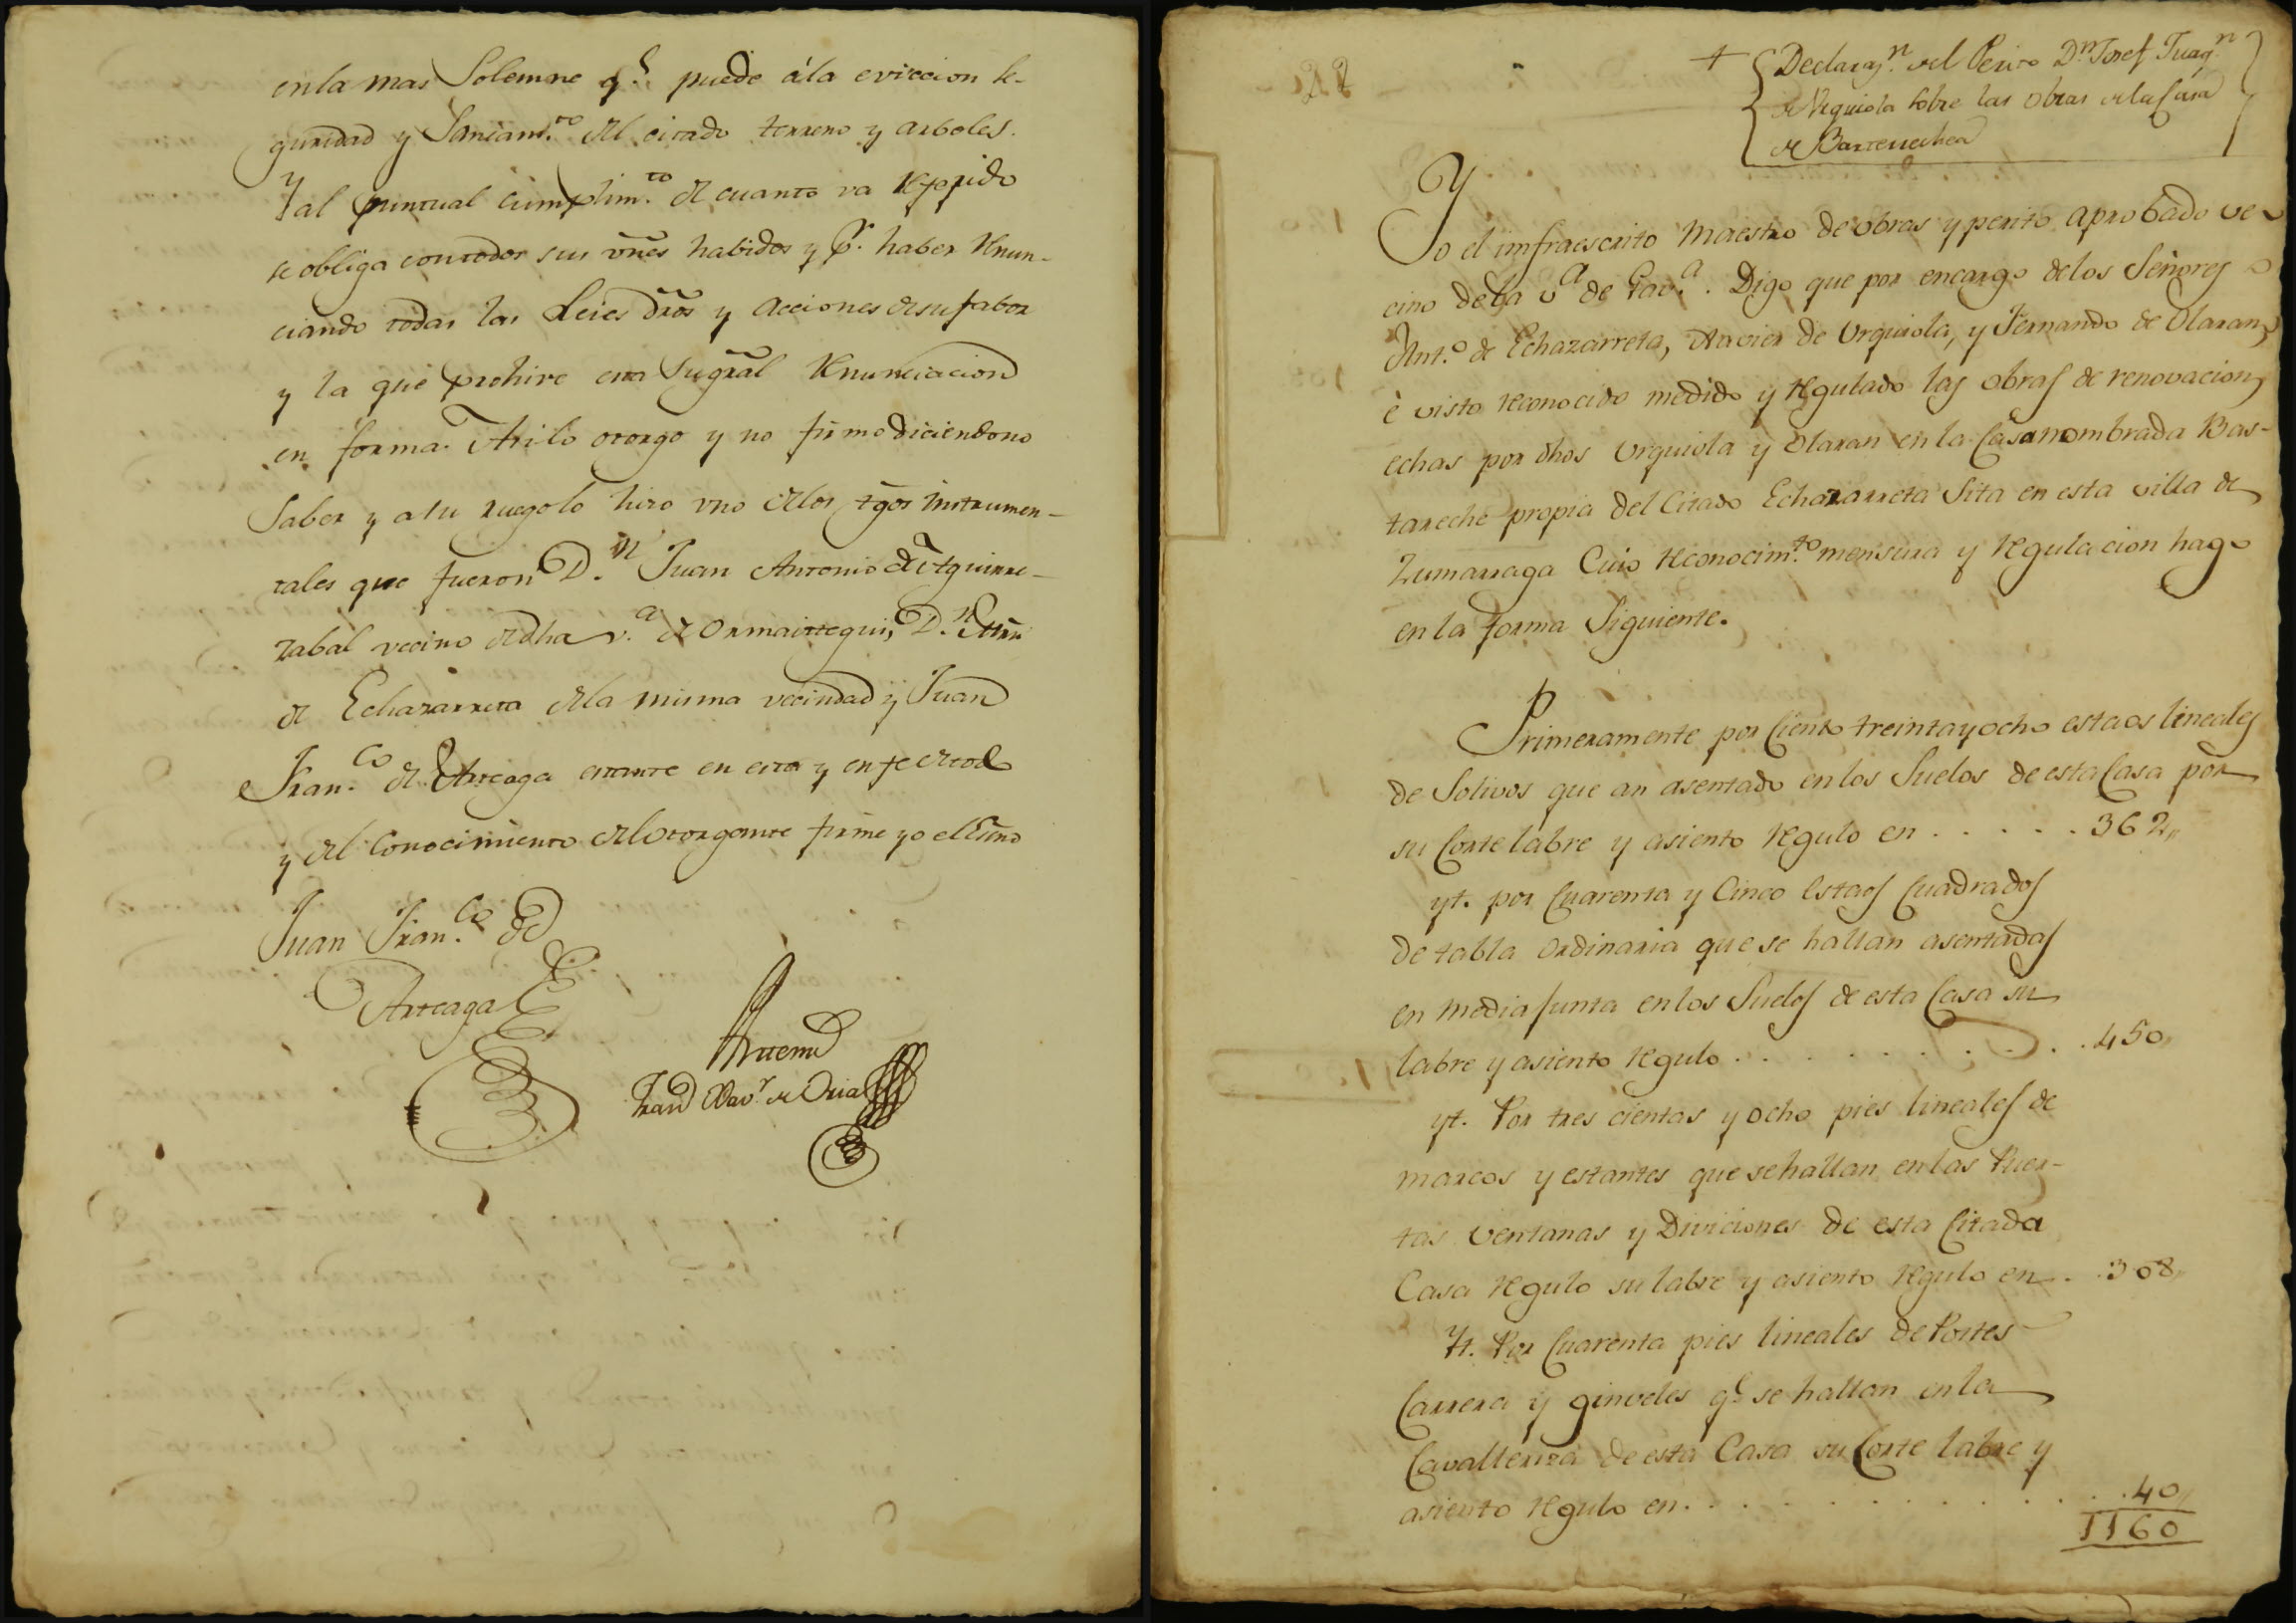 en la mas Solemne q.e puede á la eviccion se-
guridad y Saneam.to del citado terreno y arboles.
Y al puntual cumplim.to de cuanto va referido
se obliga con todos sus vnes habidos y p.r haber renun-
ciando todas las Leies dros y acciones de su fabor
y la que prohive en a Su gral renunciacion
en forma. Asi lo otorgo y no firmo diciendo no
Saber y a su ruego lo hizo vno de los tgos instrumen-
tales que fueron D.n Juan Antonio de Aguirre-
zabal vecino de dha v.a de Ormaiztegui, D.n
de Echazarreta de la misma vecindad y Juan
Fran.co de Arteaga estante en esta y en fe de todo
y del Conocimiento del otorgante firme yo el Esno
Juan Fran.co de
Arteaga
Antemi
Fran Xav.r de Oria
22
+ Declaraz.n del Perito D.n Josef Juaq.n
de Urquiola sobre las obras de la Casa
de Barrenechea
Yo el imfraescrito Maestro de obras y perito aprobado ve-
cino de la v.a de Gav.a. Digo que por encargo de los Señores
Ant.o de Echazarreta, Xavier de Urquiola, y Fernando de Olaran,
è visto reconocido medido y regulado las obras de renovacion,
echas por dhos Urquiola y Olaran en la Casa nombrada Bas-
tareche propia del Citado Echazarreta Sita en esta villa de
Zumarraga Cuio reconocim.to mensura y regulacion hago
en la forma Siguiente.
Primeramente por Ciento treinta y ocho estaos lineales
de Solivos que an asentado en los Suelos de esta Casa por
su Corte labre y asiento regulo en . . . . . 362,,
yt. por Cuarenta y Cinco Estaos Cuadrados
de tabla ordinaria que se hallan asentadas
en media Junta en los Suelos de esta Casa su
labre y asiento regulo . . . . . . . . 450,,
yt. Por tres cientas y ocho pies lineales de
marcos y estantes que se hallan en las Puer-
tas ventanas y Diviciones de esta Citada
Casa regulo su labre y asiento regulo en . . 308,,
Yt. Por Cuarenta pies lineales de Postes
Carrera y ginveles q.e se hallan en la
Cavalleriza de esta Casa su Corte labre y
asiento regulo en . . . . . . . . . . 40,,
1160